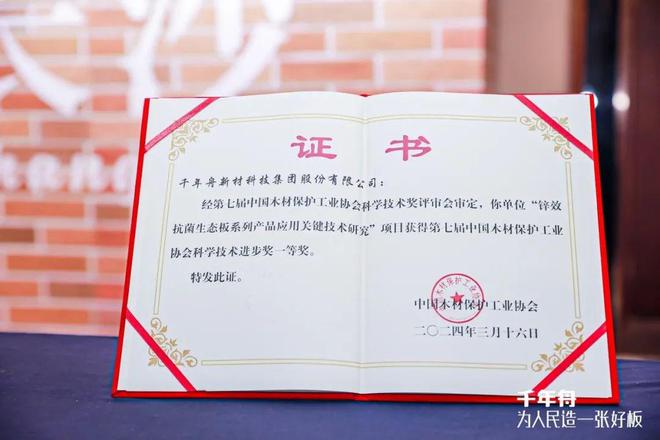 证书
千年舟新材科技集团股份有限公司：
经第七届中国木材保护工业协会科学技术奖评审会审定，你单位“锌效
抗菌生态板系列产品应用关键技术研究”项目获得第七届中国木材保护工业
协会科学技术进步奖一等奖。
特发此证。
中国木材保护工业协会
二〇二四年三月十六日
千年舟
为人民造一张好板